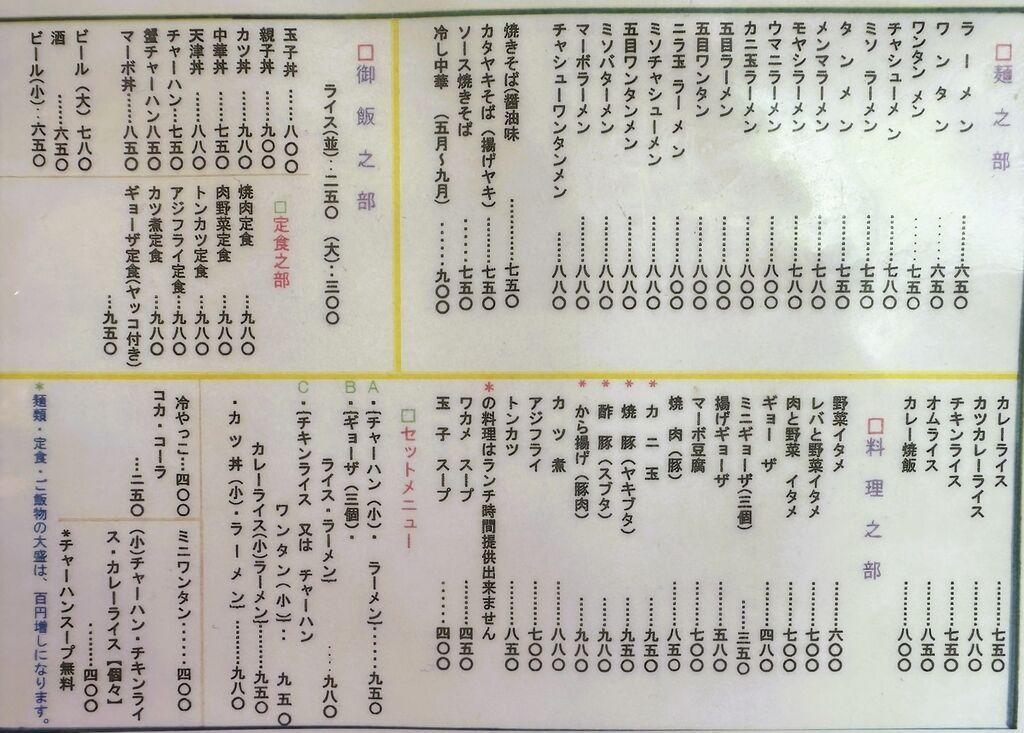 □麺之部
ラーメン………六五〇
ワンタン………六五〇
ワンタンメン………七五〇
チャシューメン………八五〇
ミソラーメン………七五〇
タンメン………七五〇
メンマラーメン………七八〇
モヤシラーメン………七八〇
ウマニラーメン………八〇〇
カニ玉ラーメン………八〇〇
五目ラーメン………八〇〇
五目ワンタン………八〇〇
ニラ玉ラーメン………八〇〇
ミソチャシューメン………八八〇
五目ワンタンメン………八八〇
ミソバターメン………八八〇
マーボラーメン………八八〇
チャシューワンタンメン………八八〇
焼きそば(醤油味………七五〇
カタヤキそば(揚げヤキ)………八五〇
ソース焼きそば……七五〇
冷し中華(五月〜九月)……九〇〇
□御飯之部
ライス(並)‥二五〇(大)‥三〇〇
玉子丼……八〇〇
親子丼……九〇〇
カツ丼……九八〇
中華丼……七五〇
天津丼……八八〇
チャーハン……七五〇
蟹チャーハン八五〇
マーボ丼……八五〇
ビール(大)七八〇
酒……六五〇
ビール(小)‥六五〇
□定食之部
焼肉定食……九八〇
肉野菜定食……九八〇
トンカツ定食……九八〇
アジフライ定食…九八〇
カツ煮定食……九八〇
ギョーザ定食(ヤッコ付き)
…九五〇
カレーライス………七五〇
カツカレーライス………八八〇
チキンライス………七五〇
オムライス………八五〇
カレー焼飯………八〇〇
□料理之部
野菜イタメ………六〇〇
レバと野菜イタメ………七〇〇
肉と野菜イタメ………七〇〇
ギョーザ………四八〇
ミニギョーザ(三個)……三五〇
揚げギョーザ………五八〇
マーボ豆腐………七〇〇
焼肉(豚)………八五〇
*カニ玉………九五〇
*焼豚(ヤキブタ)………九五〇
*酢豚(スブタ)………九八〇
*から揚げ(豚肉)………九八〇
カツ煮………八八〇
アジフライ………七〇〇
トンカツ………八五〇
*の料理はランチ時間提供出来ません
ワカメスープ……四五〇
玉子スープ……四〇〇
□セットメニュー
A・[チャーハン(小)・ラーメン]……九五〇
B・[ギョーザ(三個)・
ライス・ラーメン]……九八〇
C・[チキンライス又はチャーハン
ワンタン(小)‥九五〇
カレーライス(小)ラーメン]……九五〇
・カツ丼(小)・ラーメン]………九八〇
冷やっこ……四〇〇
コカ・コーラ
…二五〇
ミニワンタン……四〇〇
(小)チャーハン・チキンライ
ス・カレーライス【個々】
………四〇〇
*チャーハンスープ無料
*麺類・定食・ご飯物の大盛は、百円増しになります。